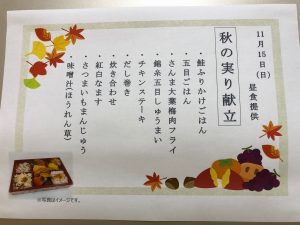 11月15日(日)　昼食提供
秋の実り献立
・鮭ふりかけごはん
・五目ごはん
・さんま大葉梅肉フライ
・錦糸五目しゅうまい
・チキンステーキ
・だし巻き
・炊き合わせ
・紅白なます
・さつまいもまんじゅう
・味噌汁(ほうれん草)
※写真はイメージです。